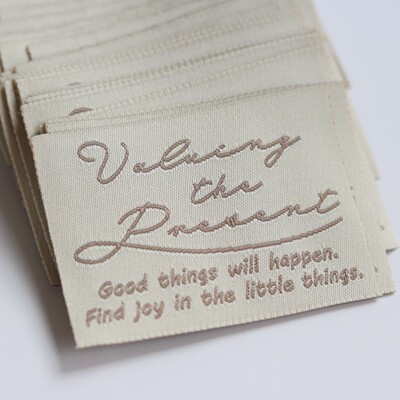 Valuing
the
Present
Good things will happen.
Find joy in the little things.